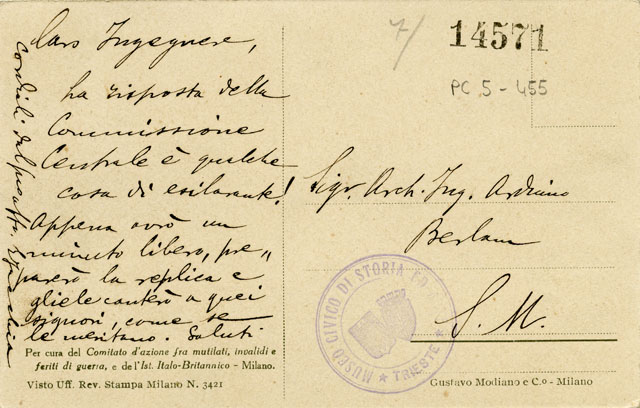 Caro Ingegnere,
la risposta della
Commissione
Centrale è qualche
cosa di esilarante!
Appena avrò un
minuto libero, pre„
parerò la replica e
gliele canterò a quei
signori, come se
le meritano. Saluti
cordiali dal suo aff.
Per cura del Comitato d'azione fra mutilati, invalidi e
feriti di guerra, e dell'Ist. Italo-Britannico - Milano.
Visto Uff. Rev. Stampa Milano N. 3421
7/
14571
PC 5 - 455
Sigr. Arch. Ing. Arduino
Berlam
S. M.
MUSEO CIVICO DI STORIA PA
★ TRIESTE ★
Gustavo Modiano e C.o - Milano